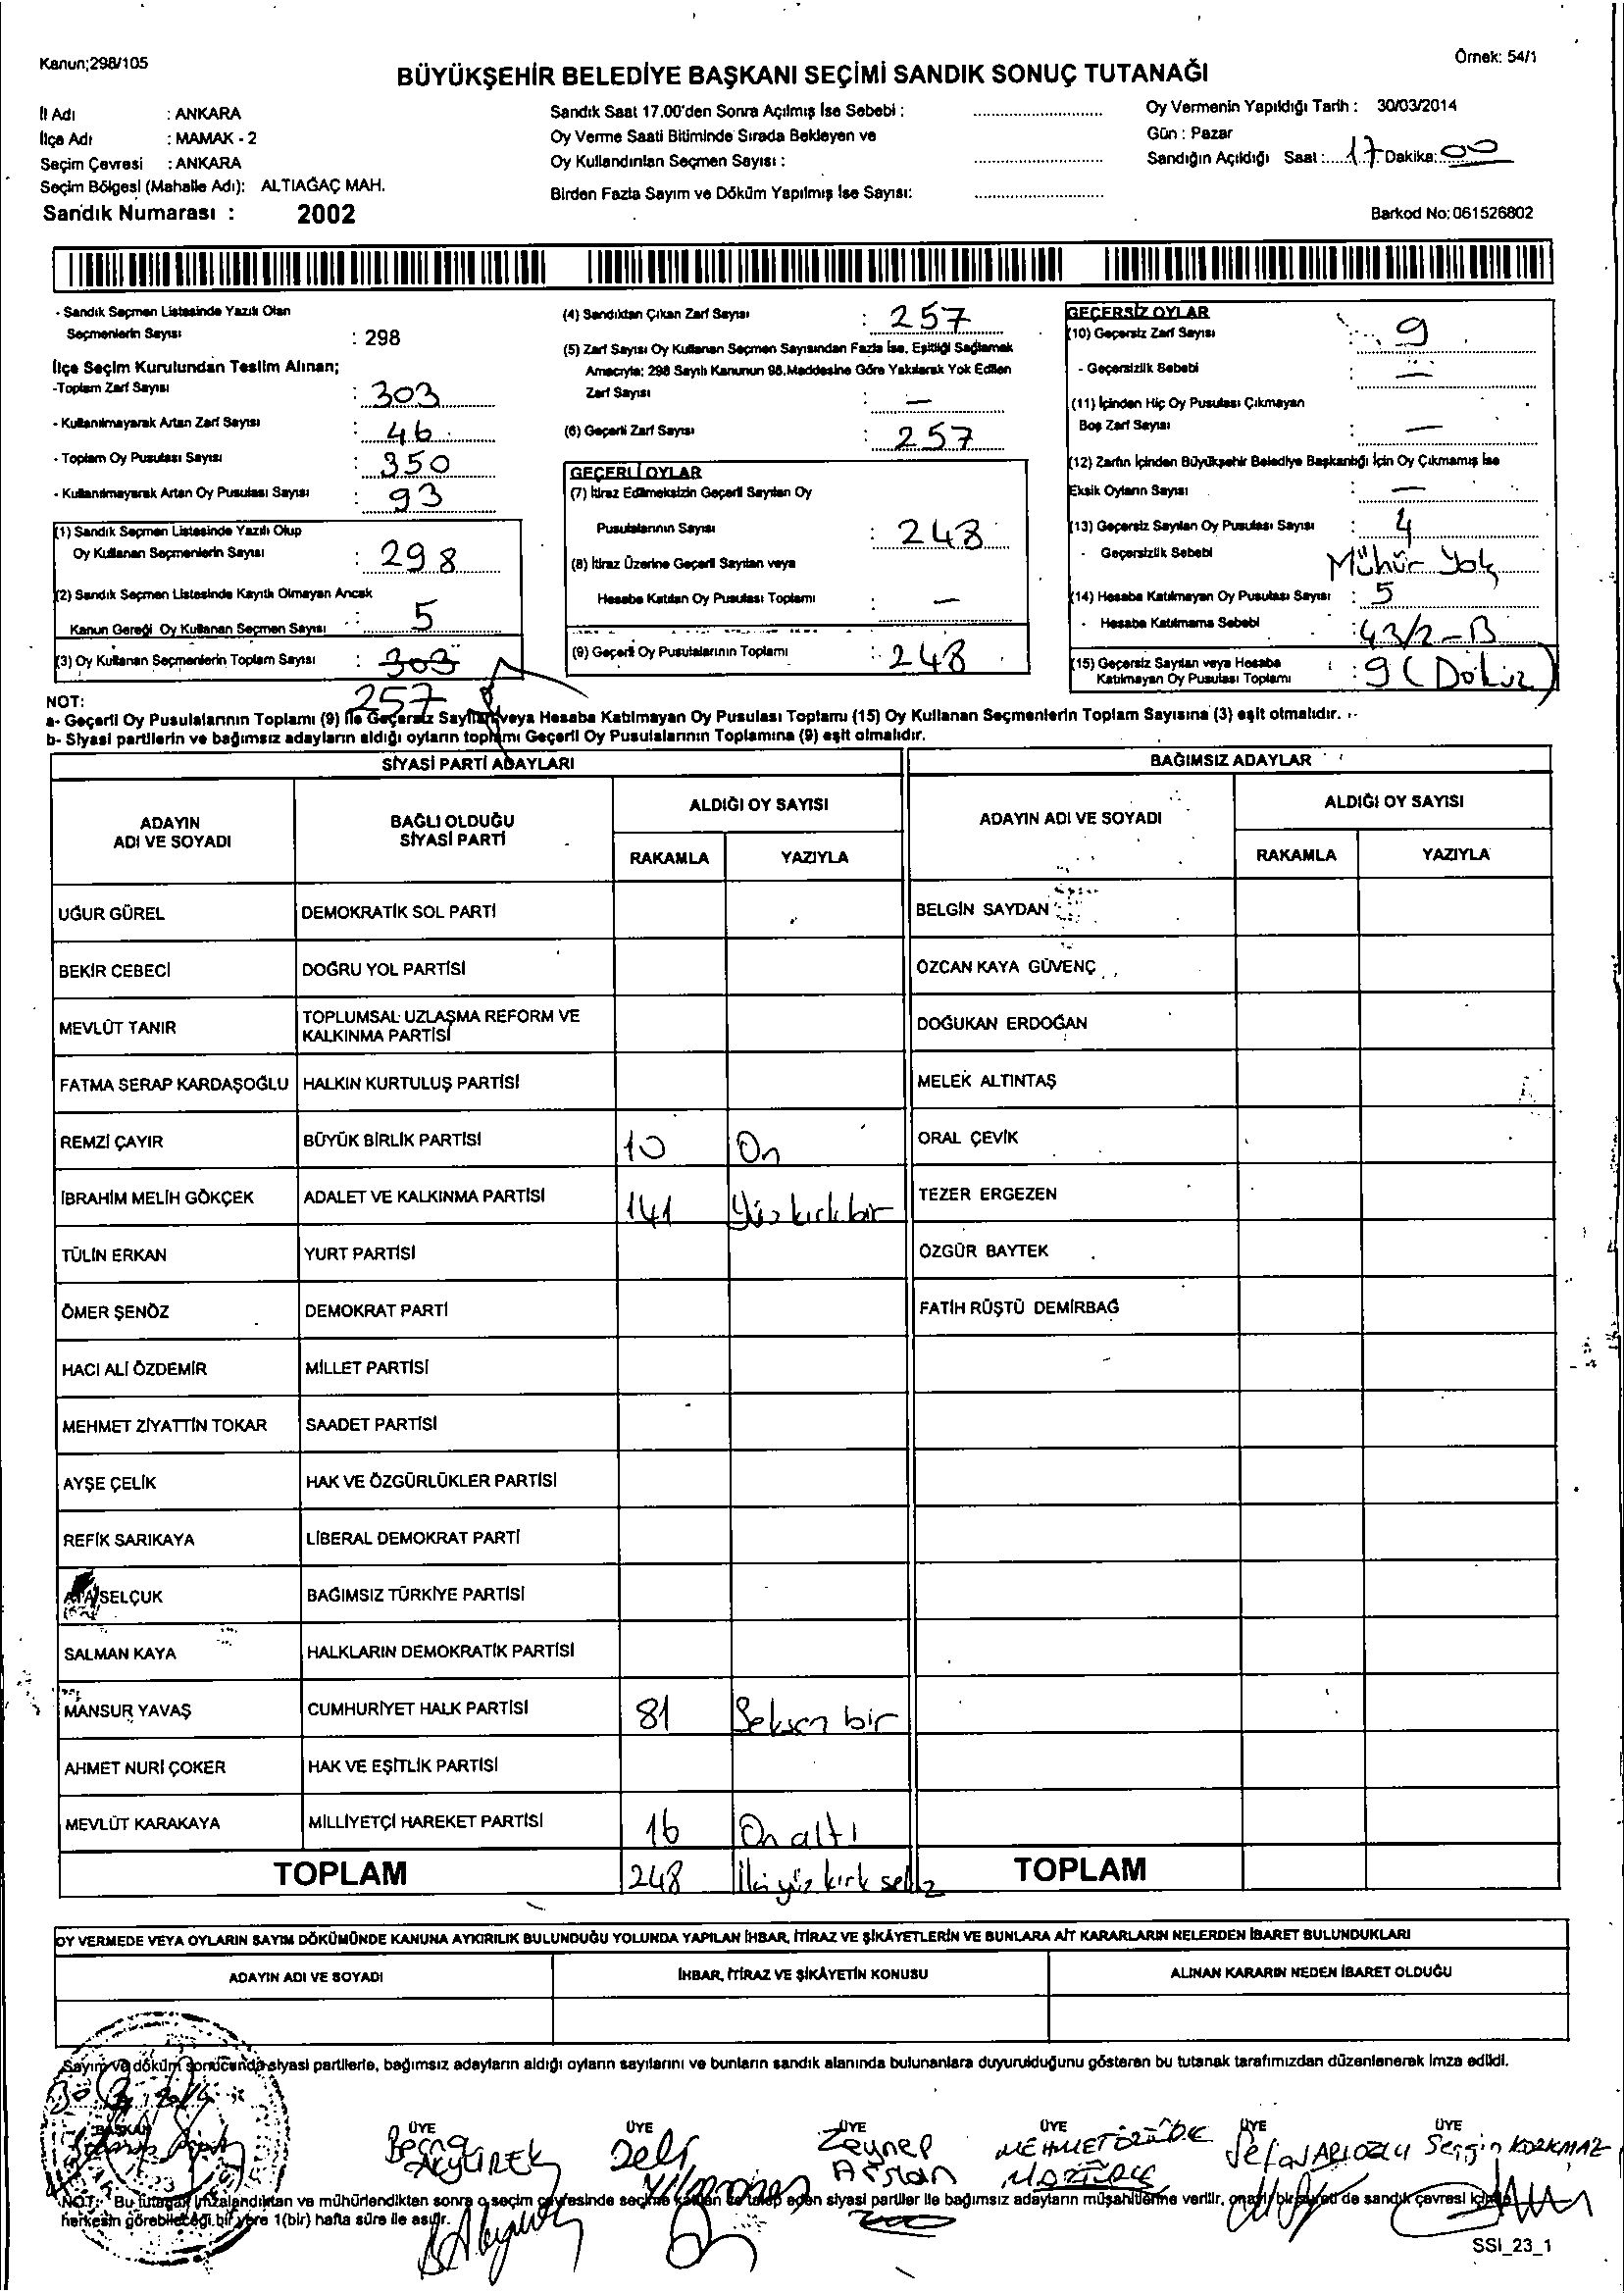 Kanun;298/105
Örnek: 54/1
BÜYÜKŞEHİR BELEDİYE BAŞKANI SEÇİMİ SANDIK SONUÇ TUTANAĞI
İl Adı : ANKARA
İlçe Adı : MAMAK - 2
Seçim Çevresi : ANKARA
Seçim Bölgesi (Mahalle Adı): ALTIAĞAÇ MAH.
Sandık Numarası : 2002
Sandık Saat 17.00'den Sonra Açılmış İse Sebebi :
Oy Verme Saati Bitiminde Sırada Bekleyen ve
Oy Kullandırılan Seçmen Sayısı :
Birden Fazla Sayım ve Döküm Yapılmış İse Sayısı:
Oy Vermenin Yapıldığı Tarih : 30/03/2014
Gün : Pazar
Sandığın Açıldığı Saat : 17 Dakika: 00
Barkod No: 061526802
- Sandık Seçmen Listesinde Yazılı Olan
Seçmenlerin Sayısı : 298
İlçe Seçim Kurulundan Teslim Alınan;
-Toplam Zarf Sayısı : 303
- Kullanılmayarak Artan Zarf Sayısı : 46
- Toplam Oy Pusulası Sayısı : 350
- Kullanılmayarak Artan Oy Pusulası Sayısı : 93
(1) Sandık Seçmen Listesinde Yazılı Olup
Oy Kullanan Seçmenlerin Sayısı : 298
(2) Sandık Seçmen Listesinde Kayıtlı Olmayan Ancak
Kanun Gereği Oy Kullanan Seçmen Sayısı : 5
(3) Oy Kullanan Seçmenlerin Toplam Sayısı : 303
257
(4) Sandıktan Çıkan Zarf Sayısı : 257
(5) Zarf Sayısı Oy Kullanan Seçmen Sayısından Fazla İse, Eşitliği Sağlamak
Amacıyla; 298 Sayılı Kanunun 98.Maddesine Göre Yakılarak Yok Edilen
Zarf Sayısı : —
(6) Geçerli Zarf Sayısı : 257
GEÇERLİ OYLAR
(7) İtiraz Edilmeksizin Geçerli Sayılan Oy
Pusulalarının Sayısı : 248
(8) İtiraz Üzerine Geçerli Sayılan veya
Hesaba Katılan Oy Pusulası Toplamı : —
(9) Geçerli Oy Pusulalarının Toplamı : 248
GEÇERSİZ OYLAR
(10) Geçersiz Zarf Sayısı : 9
- Geçersizlik Sebebi : —
(11) İçinden Hiç Oy Pusulası Çıkmayan
Boş Zarf Sayısı : —
(12) Zarfın İçinden Büyükşehir Belediye Başkanlığı İçin Oy Çıkmamış İse
Eksik Oyların Sayısı : —
(13) Geçersiz Sayılan Oy Pusulası Sayısı : 4
- Geçersizlik Sebebi Mühür Yok
(14) Hesaba Katılmayan Oy Pusulası Sayısı : 5
- Hesaba Katılmama Sebebi : 43/2-B
(15) Geçersiz Sayılan veya Hesaba
Katılmayan Oy Pusulası Toplamı : 9 (Dokuz)
NOT:
a- Geçerli Oy Pusulalarının Toplamı (9) ile Geçersiz Sayılan veya Hesaba Katılmayan Oy Pusulası Toplamı (15) Oy Kullanan Seçmenlerin Toplam Sayısına (3) eşit olmalıdır.
b- Siyasi partilerin ve bağımsız adayların aldığı oyların toplamı Geçerli Oy Pusulalarının Toplamına (9) eşit olmalıdır.
SİYASİ PARTİ ADAYLARI
BAĞIMSIZ ADAYLAR
ADAYIN ADI VE SOYADI
BAĞLI OLDUĞU SİYASİ PARTİ
ALDIĞI OY SAYISI
RAKAMLA YAZIYLA
ADAYIN ADI VE SOYADI
ALDIĞI OY SAYISI
RAKAMLA YAZIYLA
UĞUR GÜREL DEMOKRATİK SOL PARTİ BELGİN SAYDAN
BEKİR CEBECİ DOĞRU YOL PARTİSİ ÖZCAN KAYA GÜVENÇ
MEVLÜT TANIR TOPLUMSAL UZLAŞMA REFORM VE KALKINMA PARTİSİ DOĞUKAN ERDOĞAN
FATMA SERAP KARDAŞOĞLU HALKIN KURTULUŞ PARTİSİ MELEK ALTINTAŞ
REMZİ ÇAYIR BÜYÜK BİRLİK PARTİSİ 10 On ORAL ÇEVİK
İBRAHİM MELİH GÖKÇEK ADALET VE KALKINMA PARTİSİ 141 Yüz kırk bir TEZER ERGEZEN
TÜLİN ERKAN YURT PARTİSİ ÖZGÜR BAYTEK
ÖMER ŞENÖZ DEMOKRAT PARTİ FATİH RÜŞTÜ DEMİRBAĞ
HACI ALİ ÖZDEMİR MİLLET PARTİSİ
MEHMET ZİYATTİN TOKAR SAADET PARTİSİ
AYŞE ÇELİK HAK VE ÖZGÜRLÜKLER PARTİSİ
REFİK SARIKAYA LİBERAL DEMOKRAT PARTİ
SELÇUK BAĞIMSIZ TÜRKİYE PARTİSİ
SALMAN KAYA HALKLARIN DEMOKRATİK PARTİSİ
MANSUR YAVAŞ CUMHURİYET HALK PARTİSİ 81 Seksen bir
AHMET NURİ ÇOKER HAK VE EŞİTLİK PARTİSİ
MEVLÜT KARAKAYA MİLLİYETÇİ HAREKET PARTİSİ 16 On altı
TOPLAM 248 İki yüz kırk sekiz TOPLAM
OY VERMEDE VEYA OYLARIN SAYIM DÖKÜMÜNDE KANUNA AYKIRILIK BULUNDUĞU YOLUNDA YAPILAN İHBAR, İTİRAZ VE ŞİKÂYETLERİN VE BUNLARA AİT KARARLARIN NELERDEN İBARET BULUNDUKLARI
ADAYIN ADI VE SOYADI İHBAR, İTİRAZ VE ŞİKÂYETİN KONUSU ALINAN KARARIN NEDEN İBARET OLDUĞU
Sayım ve döküm sonucunda siyasi partilerle, bağımsız adayların aldığı oyların sayılarını ve bunların sandık alanında bulunanlara duyurulduğunu gösteren bu tutanak tarafımızdan düzenlenerek imza edildi.
BAŞKAN ÜYE ÜYE ÜYE ÜYE ÜYE ÜYE
AKYÜREK Zeynep Arslan MEHMET Sergin KORKMAZ
NOT: Bu tutanak imzalandıktan ve mühürlendikten sonra o seçim çevresinde seçime katılan ve talep eden siyasi partiler ile bağımsız adayların müşahitlerine verilir, onaylı bir sureti de sandık çevresi içinde
herkesin görebileceği bir yere 1(bir) hafta süre ile asılır.
SSI_23_1